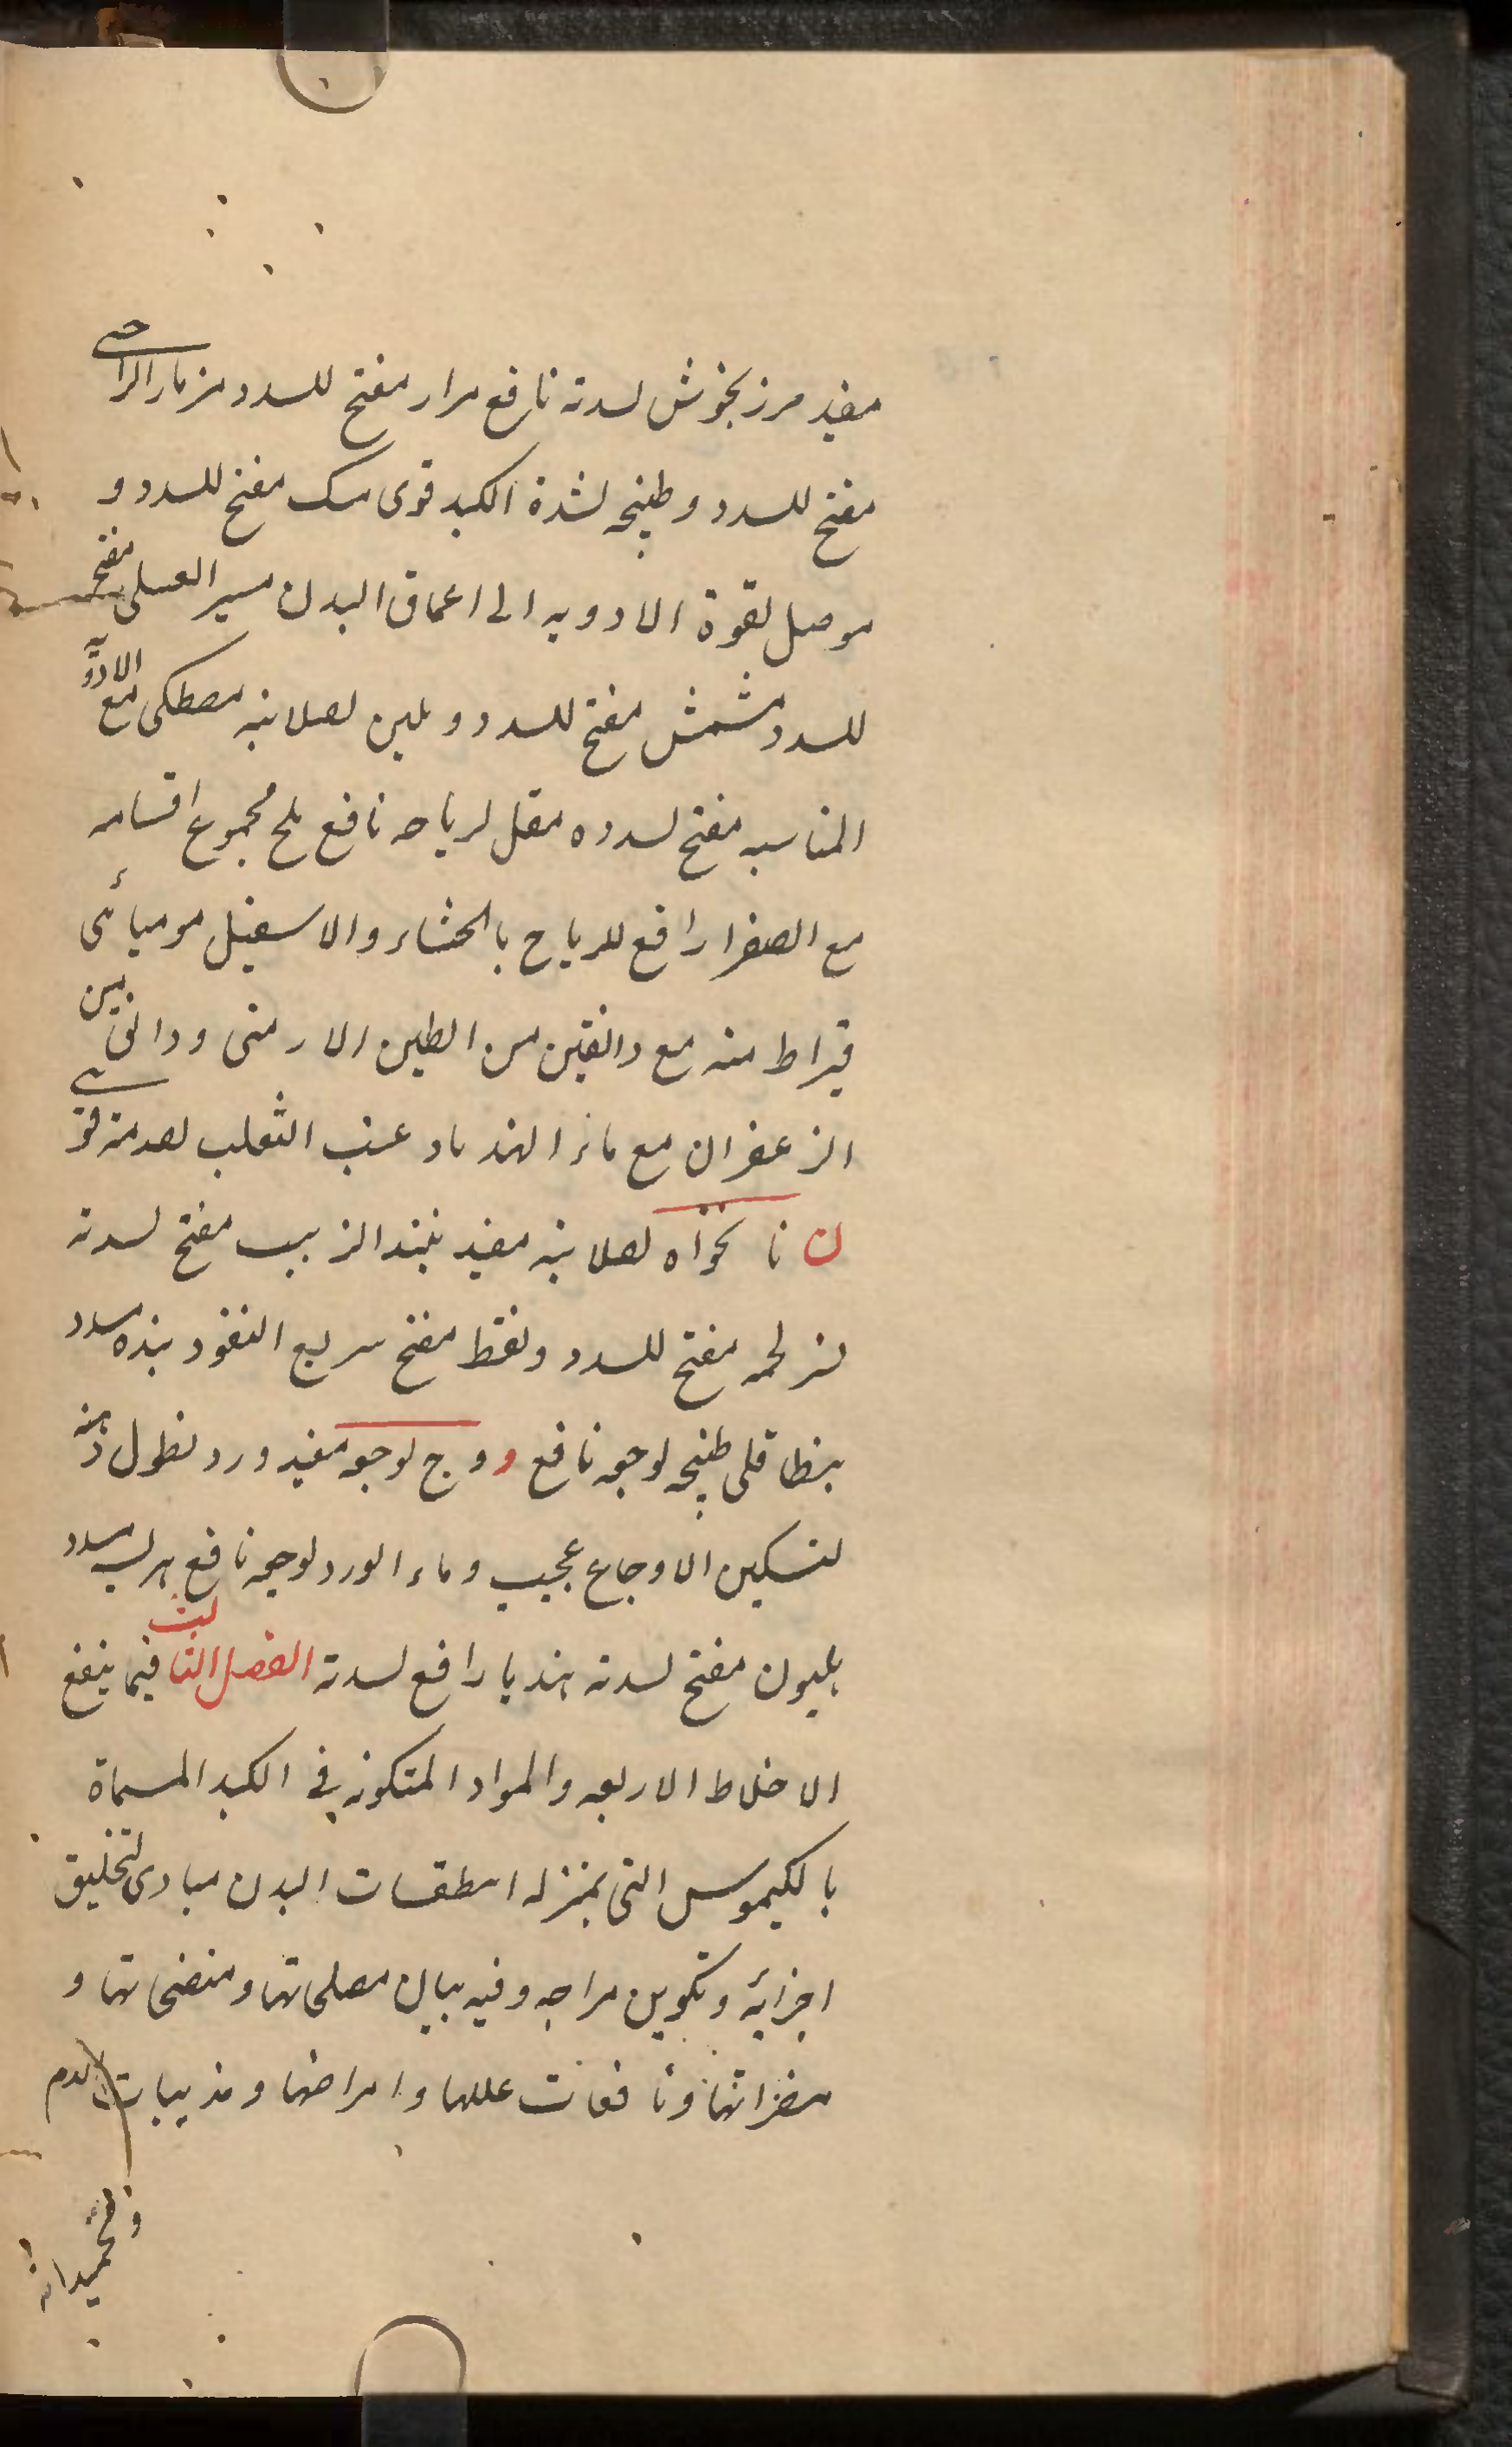 مفید مرزنجوش لسدته نافع مرار مفتح للسدد مزمار الراعی
مفتح للسدد و طبیخه لشدة الکبد قوی مسک مفتح للسدد و
موصل لقوة الادویه الی اعماق البدن مسیر العسلی مفتح
للسدد مشمش مفتح للسدد و ملین لصلابته مصطکی مع الادویة
المناسبه مفتح لسدده مقل لریاحه نافع ملح مجموع اقسامه
مع الصفرا رافع للریاح بالجشاء و الاسفیل مومیائی
قیراط منه مع دانقین من الطین الارمنی و دانقین من
الزعفران مع ماء الهندباء و عنب الثعلب لصدمته قوی
ن نانخواه لصلابته مفید نبیذ الزبیب مفتح لسدته
نسر لحمه مفتح للسدد و نفط مفتح سریع النفوذ بذه سدد
بنطاقلی طبیخه لوجعه نافع و وج لوجعه مفید ورد نطول دهنه
لتسکین الاوجاع عجیب و ماء الورد لوجعه نافع هریسه مسدد
هلیون مفتح لسدته هندبا رافع لسدته الفصل الثالث فیما ینفع
الاخلاط الاربعه والمواد المتکونه فی الکبد المسماة
بالکیموس التی بمنزله اسطقسات البدن مبادی لتخلیق
اجزائه و تکوین مزاجه و فیه بیان مصلحاتها و منضجاتها و
مضراتها و نافعات عللها و امراضها و مذیبات الدم